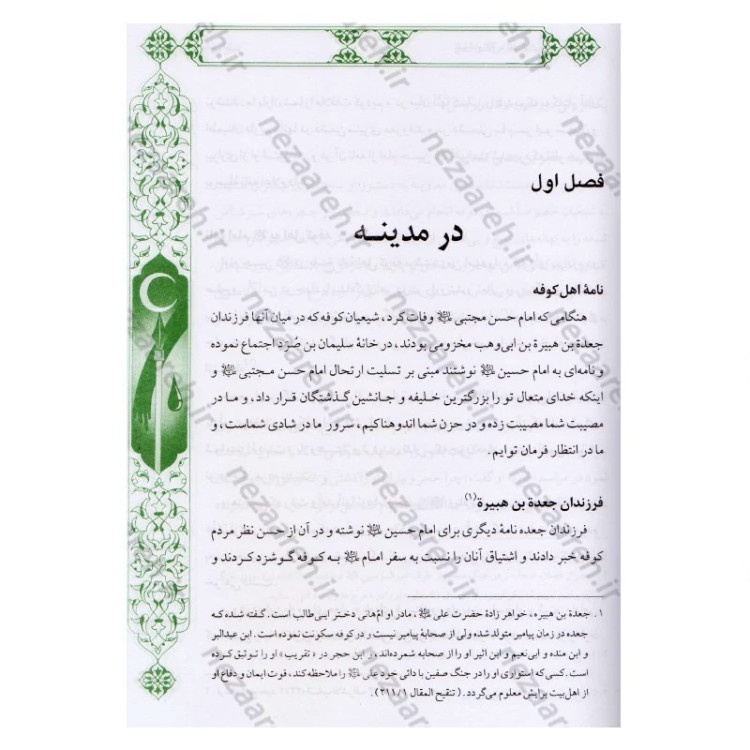 فصل اول
در مدینـه
نامهٔ اهل کوفه
هنگامی که امام حسن مجتبی ﷷ وفات کرد، شیعیان کوفه که در میان آنها فرزندان
جعدة بن هبیرة بن ابی‌وهب مخزومی بودند، در خانهٔ سلیمان بن صُرَد اجتماع نموده
و نامه‌ای به امام حسین نوشتند مبنی بر تسلیت ارتحال امام حسن مجتبی و
اینکه خدای متعال تو را بزرگترین خلیفه و جانشین گذشتگان قرار داد، و ما در
مصیبت شما مصیبت زده و در حزن شما اندوهناکیم، سرور ما در شادی شماست، و
ما در انتظار فرمان توایم.
فرزندان جعدة بن هبیرة(۱)
فرزندان جعده نامهٔ دیگری برای امام حسین نوشته و در آن از حسن نظر مردم
کوفه خبر دادند و اشتیاق آنان را نسبت به سفر امام به کوفه گوشزد کردند و
۱. جعدة بن هبیره، خواهر زادهٔ حضرت علی، مادر او امّ‌هانی دختر ابی‌طالب است. گفته شده که
جعده در زمان پیامبر متولد شده ولی از صحابهٔ پیامبر نیست و در کوفه سکونت نموده است. ابن عبدالبر
و ابن منده و ابی‌نعیم و ابن اثیر او را از صحابه شمرده‌اند، و ابن حجر در «تقریب» او را توثیق کرده
است. کسی که استواری او را در جنگ صفین با دائی خود علی را ملاحظه کند، قوت ایمان و دفاع او
از اهل‌بیت برایش معلوم می‌گردد. (تنقیح المقال ۲۱۱/۱).
nezaareh.ir